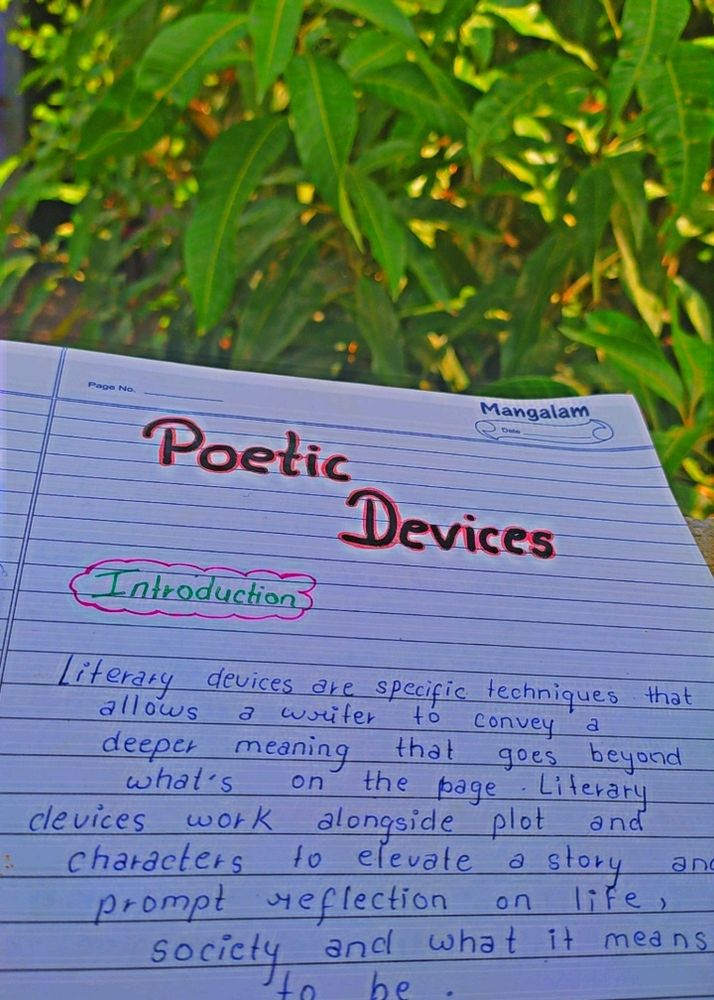 Page No.
Mangalam
Date
Poetic
Devices
Introduction
Literary devices are specific techniques that
allows a writer to convey a
deeper meaning that goes beyond
what's on the page. Literary
devices work alongside plot and
characters to elevate a story an
prompt reflection on life,
society and what it means
to be.